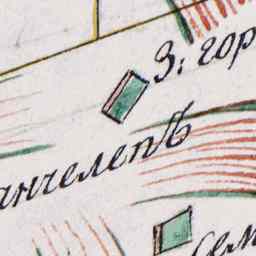 3: гор
анчелепѣ
сем